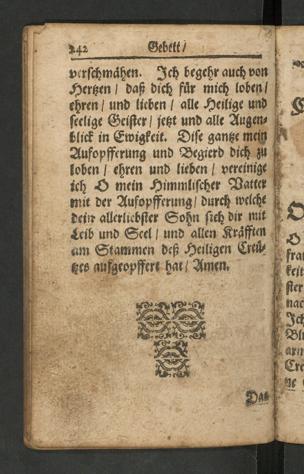 242 Gebett/
verschmähen. Ich begehr auch von
Hertzen / daß dich für mich loben /
ehren / und lieben / alle Heilige und
seelige Geister / jetzt und alle Augen-
blick in Ewigkeit. Dise gantze mein
Aufopfferung und Begierd dich zu
loben / ehren und lieben / vereinige
ich O mein Himmlischer Vatter
mit der Aufopfferung / durch welche
dein allerliebster Sohn sich dir mit
Leib und Seel / und allen Kräfften
am Stammen deß Heiligen Creü-
tzes aufgeopffert hat / Amen.
Das